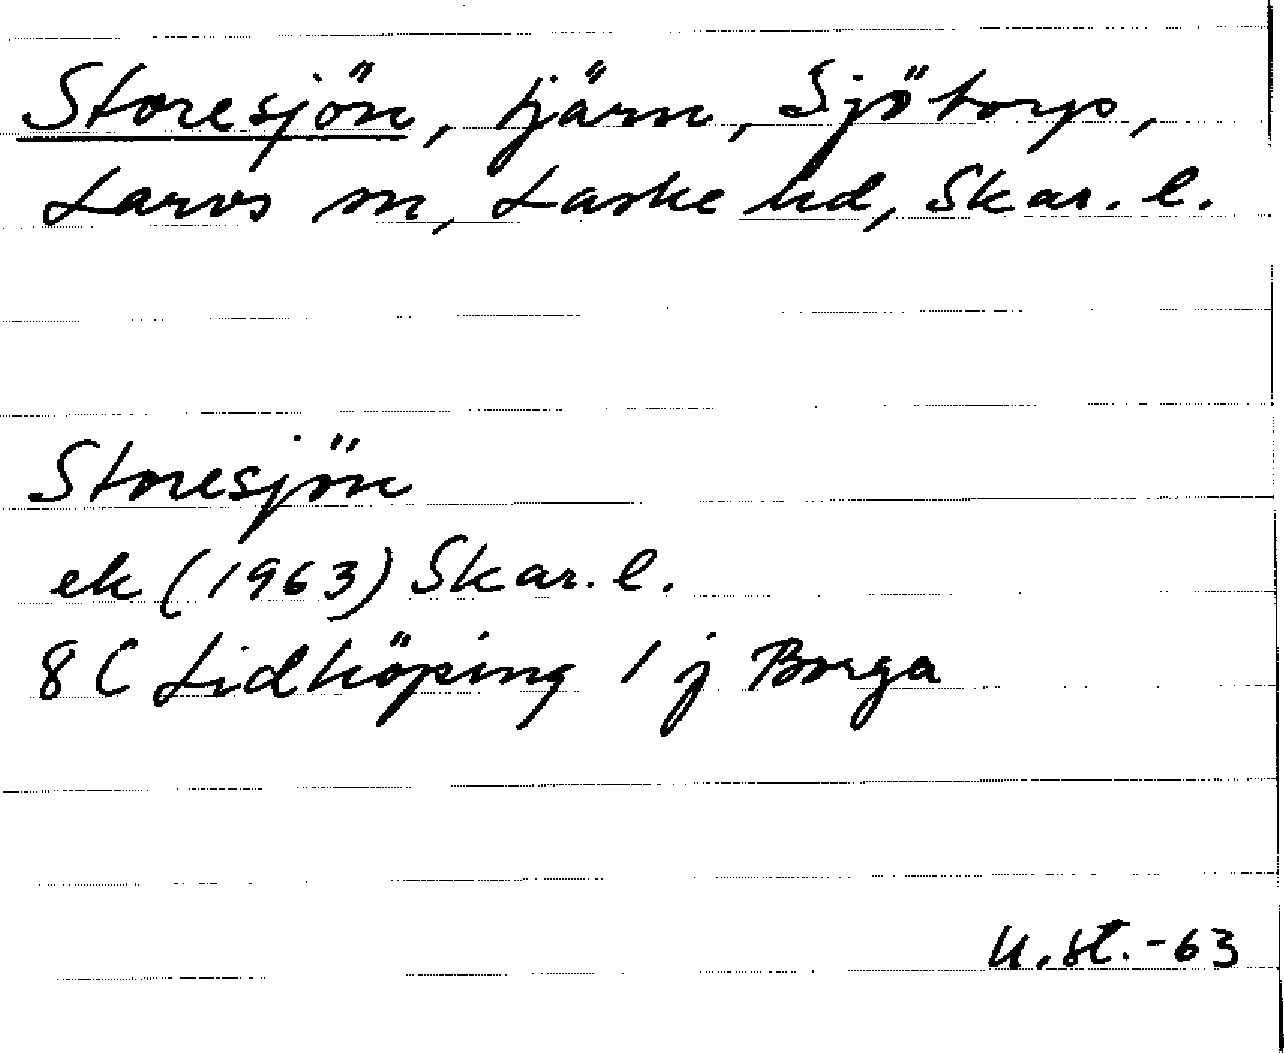 Storesjön, tjärn, Sjötorp,
Larvs sn, Laske hd, Skar. l.
Storesjön
ek (1963) Skar. l.
8C Lidköping 1 j Borga
U. St. -63